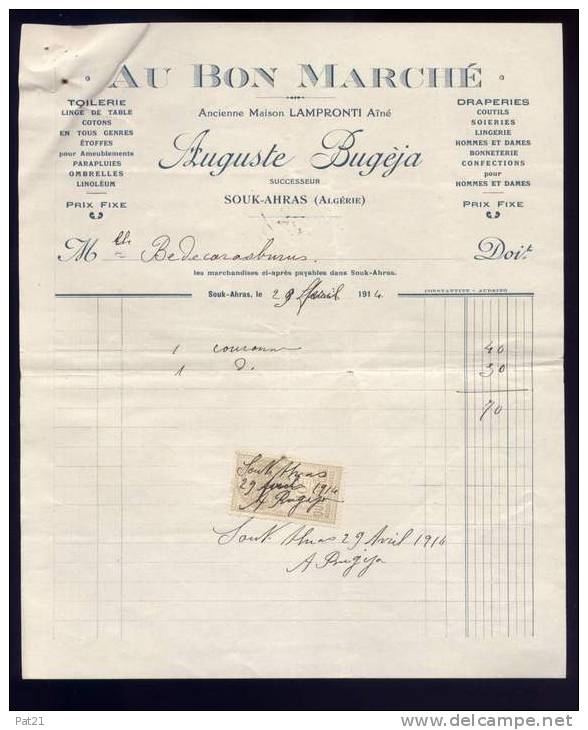 AU BON MARCHÉ
TOILERIE
LINGE DE TABLE
COTONS
EN TOUS GENRES
ÉTOFFES
pour Ameublements
PARAPLUIES
OMBRELLES
LINOLÉUM
PRIX FIXE
Ancienne Maison LAMPRONTI Aîné
Auguste Bugèja
SUCCESSEUR
SOUK-AHRAS (ALGÉRIE)
DRAPERIES
COUTILS
SOIERIES
LINGERIE
HOMMES ET DAMES
BONNETERIE
CONFECTIONS
pour
HOMMES ET DAMES
PRIX FIXE
M Bedecarasburus Doit
les marchandises ci-après payables dans Souk-Ahras.
Souk-Ahras, le 29 Avril 1914
CONSTANTINE - AUDRINO
1 couronne 40
1 d. 30
70
Souk Ahras
29 Avril 1914
A Bugeja
Souk Ahras 29 Avril 1914
A Bugeja
Pat21
www.delcampe.net